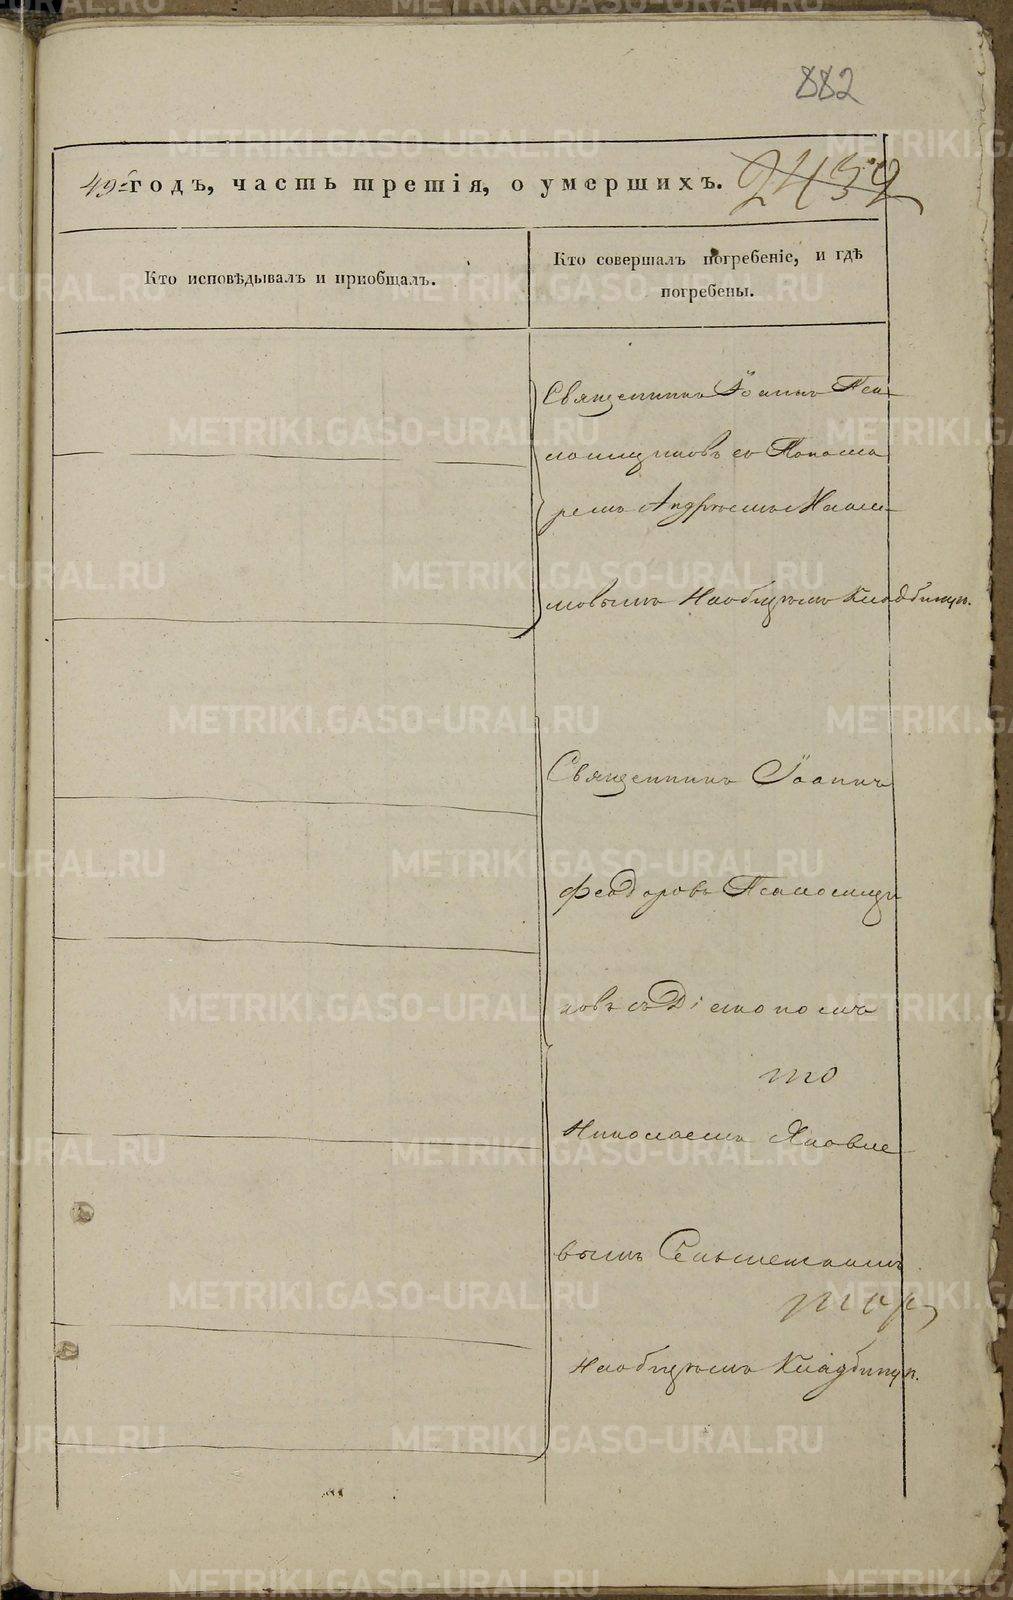 882
49 годъ, часть третія, о умершихъ. 2432
Кто исповѣдывалъ и приобщалъ.
Кто совершалъ погребеніе, и гдѣ
погребены.
Священникъ Іоаннъ Пса-
ломщиковъ со Понома
ремъ Андреемъ
Наобщемъ Кладбищѣ.
Священникъ Іоаннъ
Феодоровъ Псаломщи
ковъ съ Діакономъ
то
Николаемъ Яковле
вымъ
наобщемъ Кладбищѣ.
METRIKI.GASO-URAL.RU